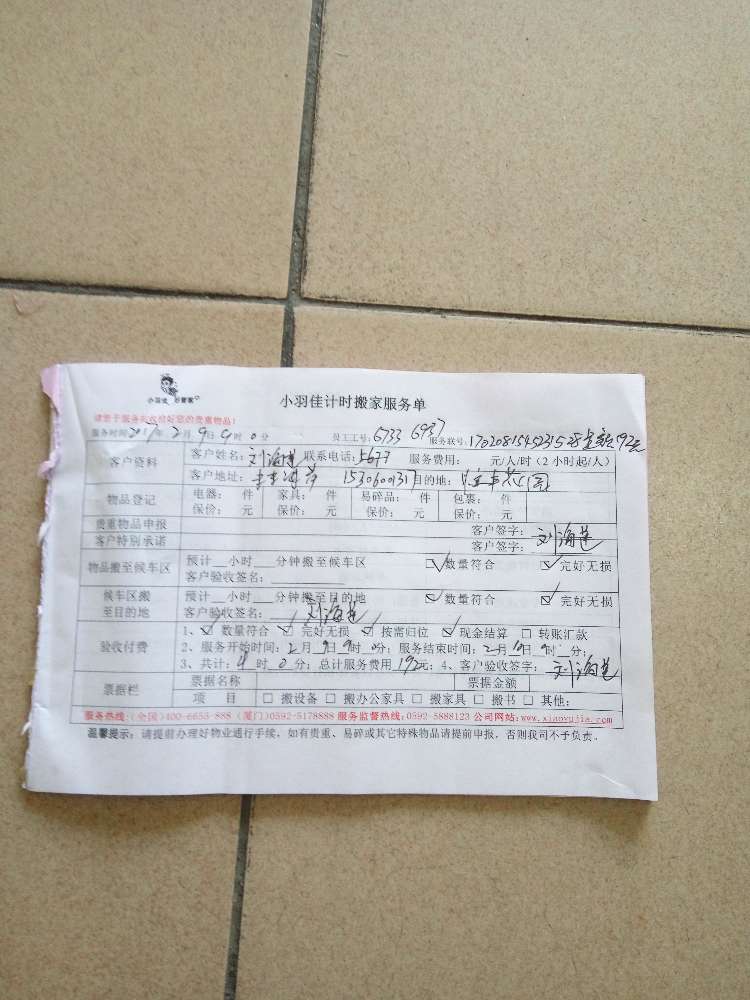 小羽佳 好管家
小羽佳计时搬家服务单
请您于服务前收拾好您的贵重物品!
服务时间:2017年2月9日9时0分 员工工号:6733 6937 服务款号:
客户资料 客户姓名:刘海莲 联系电话:5677 服务费用: 元/人/时(2小时起/人)
客户地址: 目的地:
物品登记 电器: 件 家具: 件 易碎品: 件 包裹: 件
保价: 元 保价: 元 保价: 元 保价: 元
贵重物品申报 客户签字:
客户特别承诺 客户签字:刘海莲
物品搬至候车区 预计__小时___分钟搬至候车区 ☑数量符合 ☑完好无损
客户验收签名:
候车区搬至目的地 预计__小时___分钟搬至目的地 ☑数量符合 ☑完好无损
客户验收签名:刘海莲
验收付费 1、☑数量符合 ☑完好无损 ☑按需归位 ☑现金结算 □转账汇款
2、服务开始时间:2月9日9时0分;服务结束时间:2月 日9时 分;
3、共计:4时0分;总计服务费用192元;4、客户验收签字:刘海莲
票据栏 票据名称 票据金额
项 目 □搬设备 □搬办公家具 □搬家具 □搬书 □其他:
服务热线:(全国)400-6653-888 (厦门)0592-5178888 服务监督热线:0592-5888123 公司网站:www.xiaoyujia.com
温馨提示:请提前办理好物业通行手续,如有贵重、易碎或其它特殊物品请提前申报,否则我司不予负责。